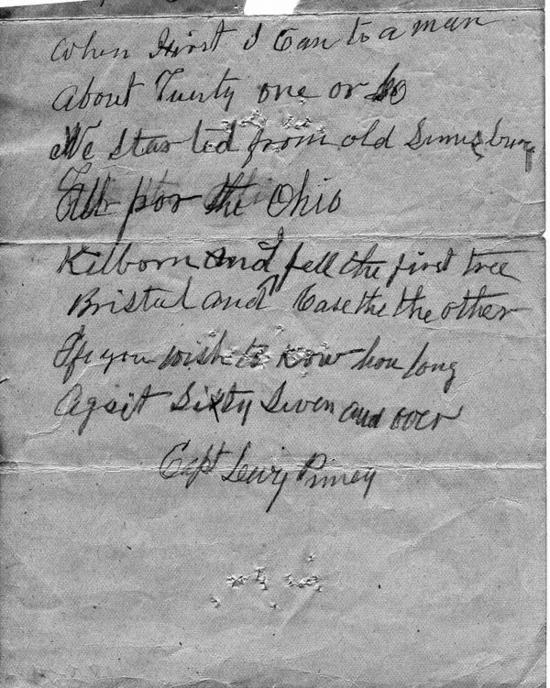 When First I Cam to a man
About Twenty one or so
We started from old Simsbury
All for the Ohio
Kilborn and I fell the first tree
Bristul and Case the the other
If you wish to know how long
Ago it Sixty Seven and over
Capt Levi Piney